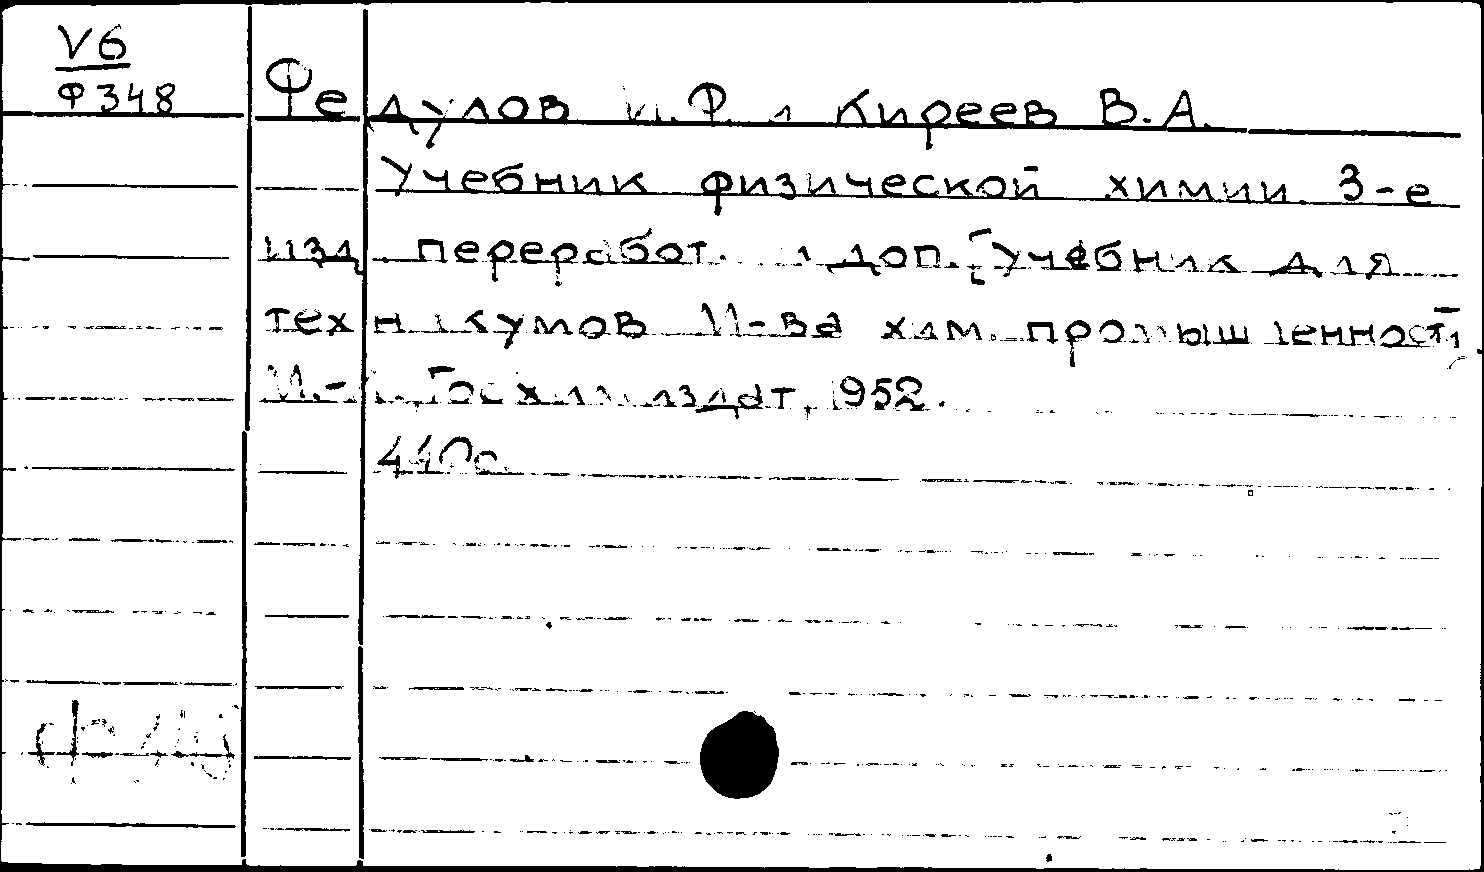 V6
Ф348
Федулов И.Ф. и Киреев В.А.
Учебник физической химии. 3-е
изд. переработ. и доп. [Учебник для
техникумов М-ва хим. промышленности]
М.-Л., Госхимиздат, 1952.
440с.